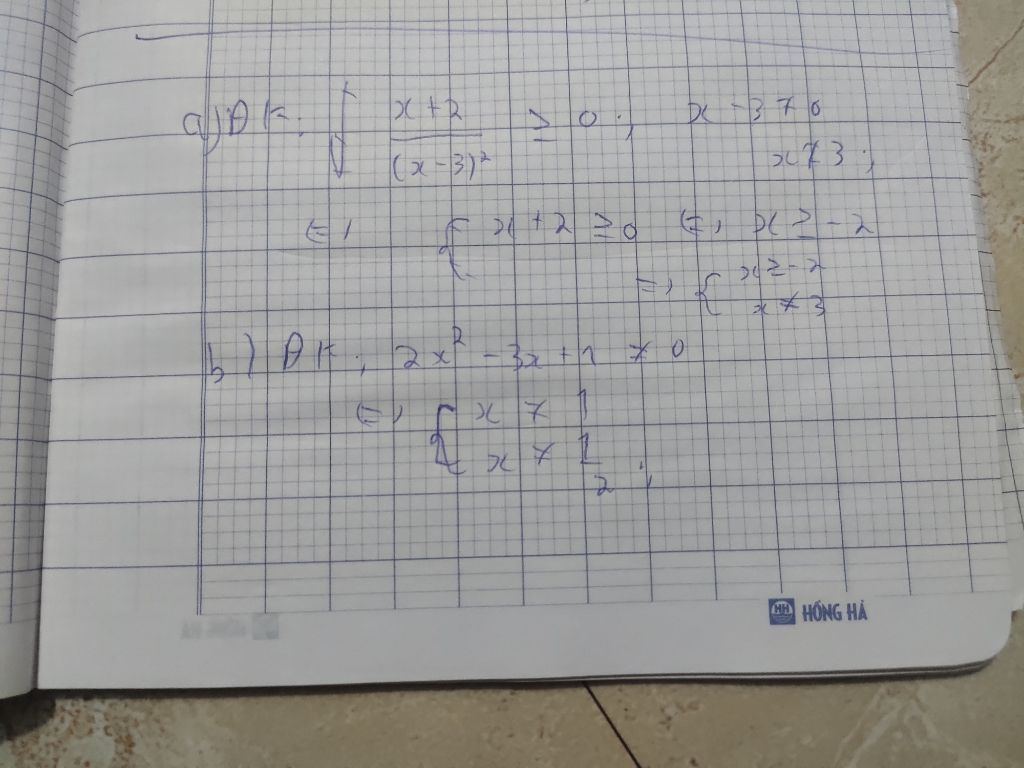 a) ĐK: { x+2 / (x-3)² ≥ 0 ; x-3 ≠ 0
x ≠ 3 ;
⇔ { x+2 ≥ 0 ⇔ x ≥ -2
⇒ { x ≥ -2
x ≠ 3
b) ĐK: 2x² - 3x + 1 ≠ 0
⇔ { x ≠ 1
x ≠ 1/2 ;
HH HỒNG HÀ